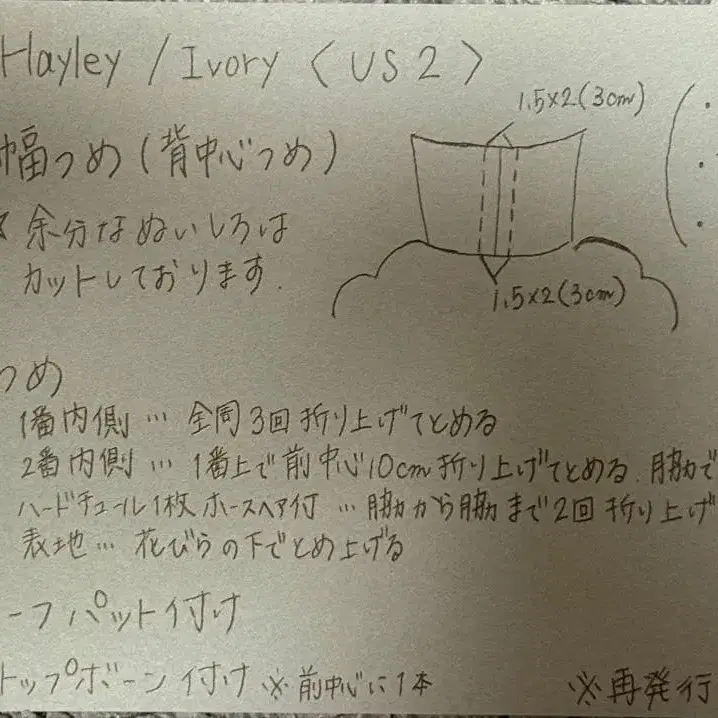 Hayley / Ivory 〈 US 2 〉
1.5×2(3cm)
幅つめ(背中心つめ)
余分なぬいしろは
カットしております.
1.5×2(3cm)
つめ
1番内側 … 全周3回折り上げてとめる
2番内側 … 1番上で前中心10cm折り上げてとめる. 脇で
ハードチュール1枚 ホースヘア付 … 脇から脇まで2回折り上げ
表地 … 花びらの下でとめ上げる
ーフパット付け
トップボーン付け ※前中心に1本
※再発行